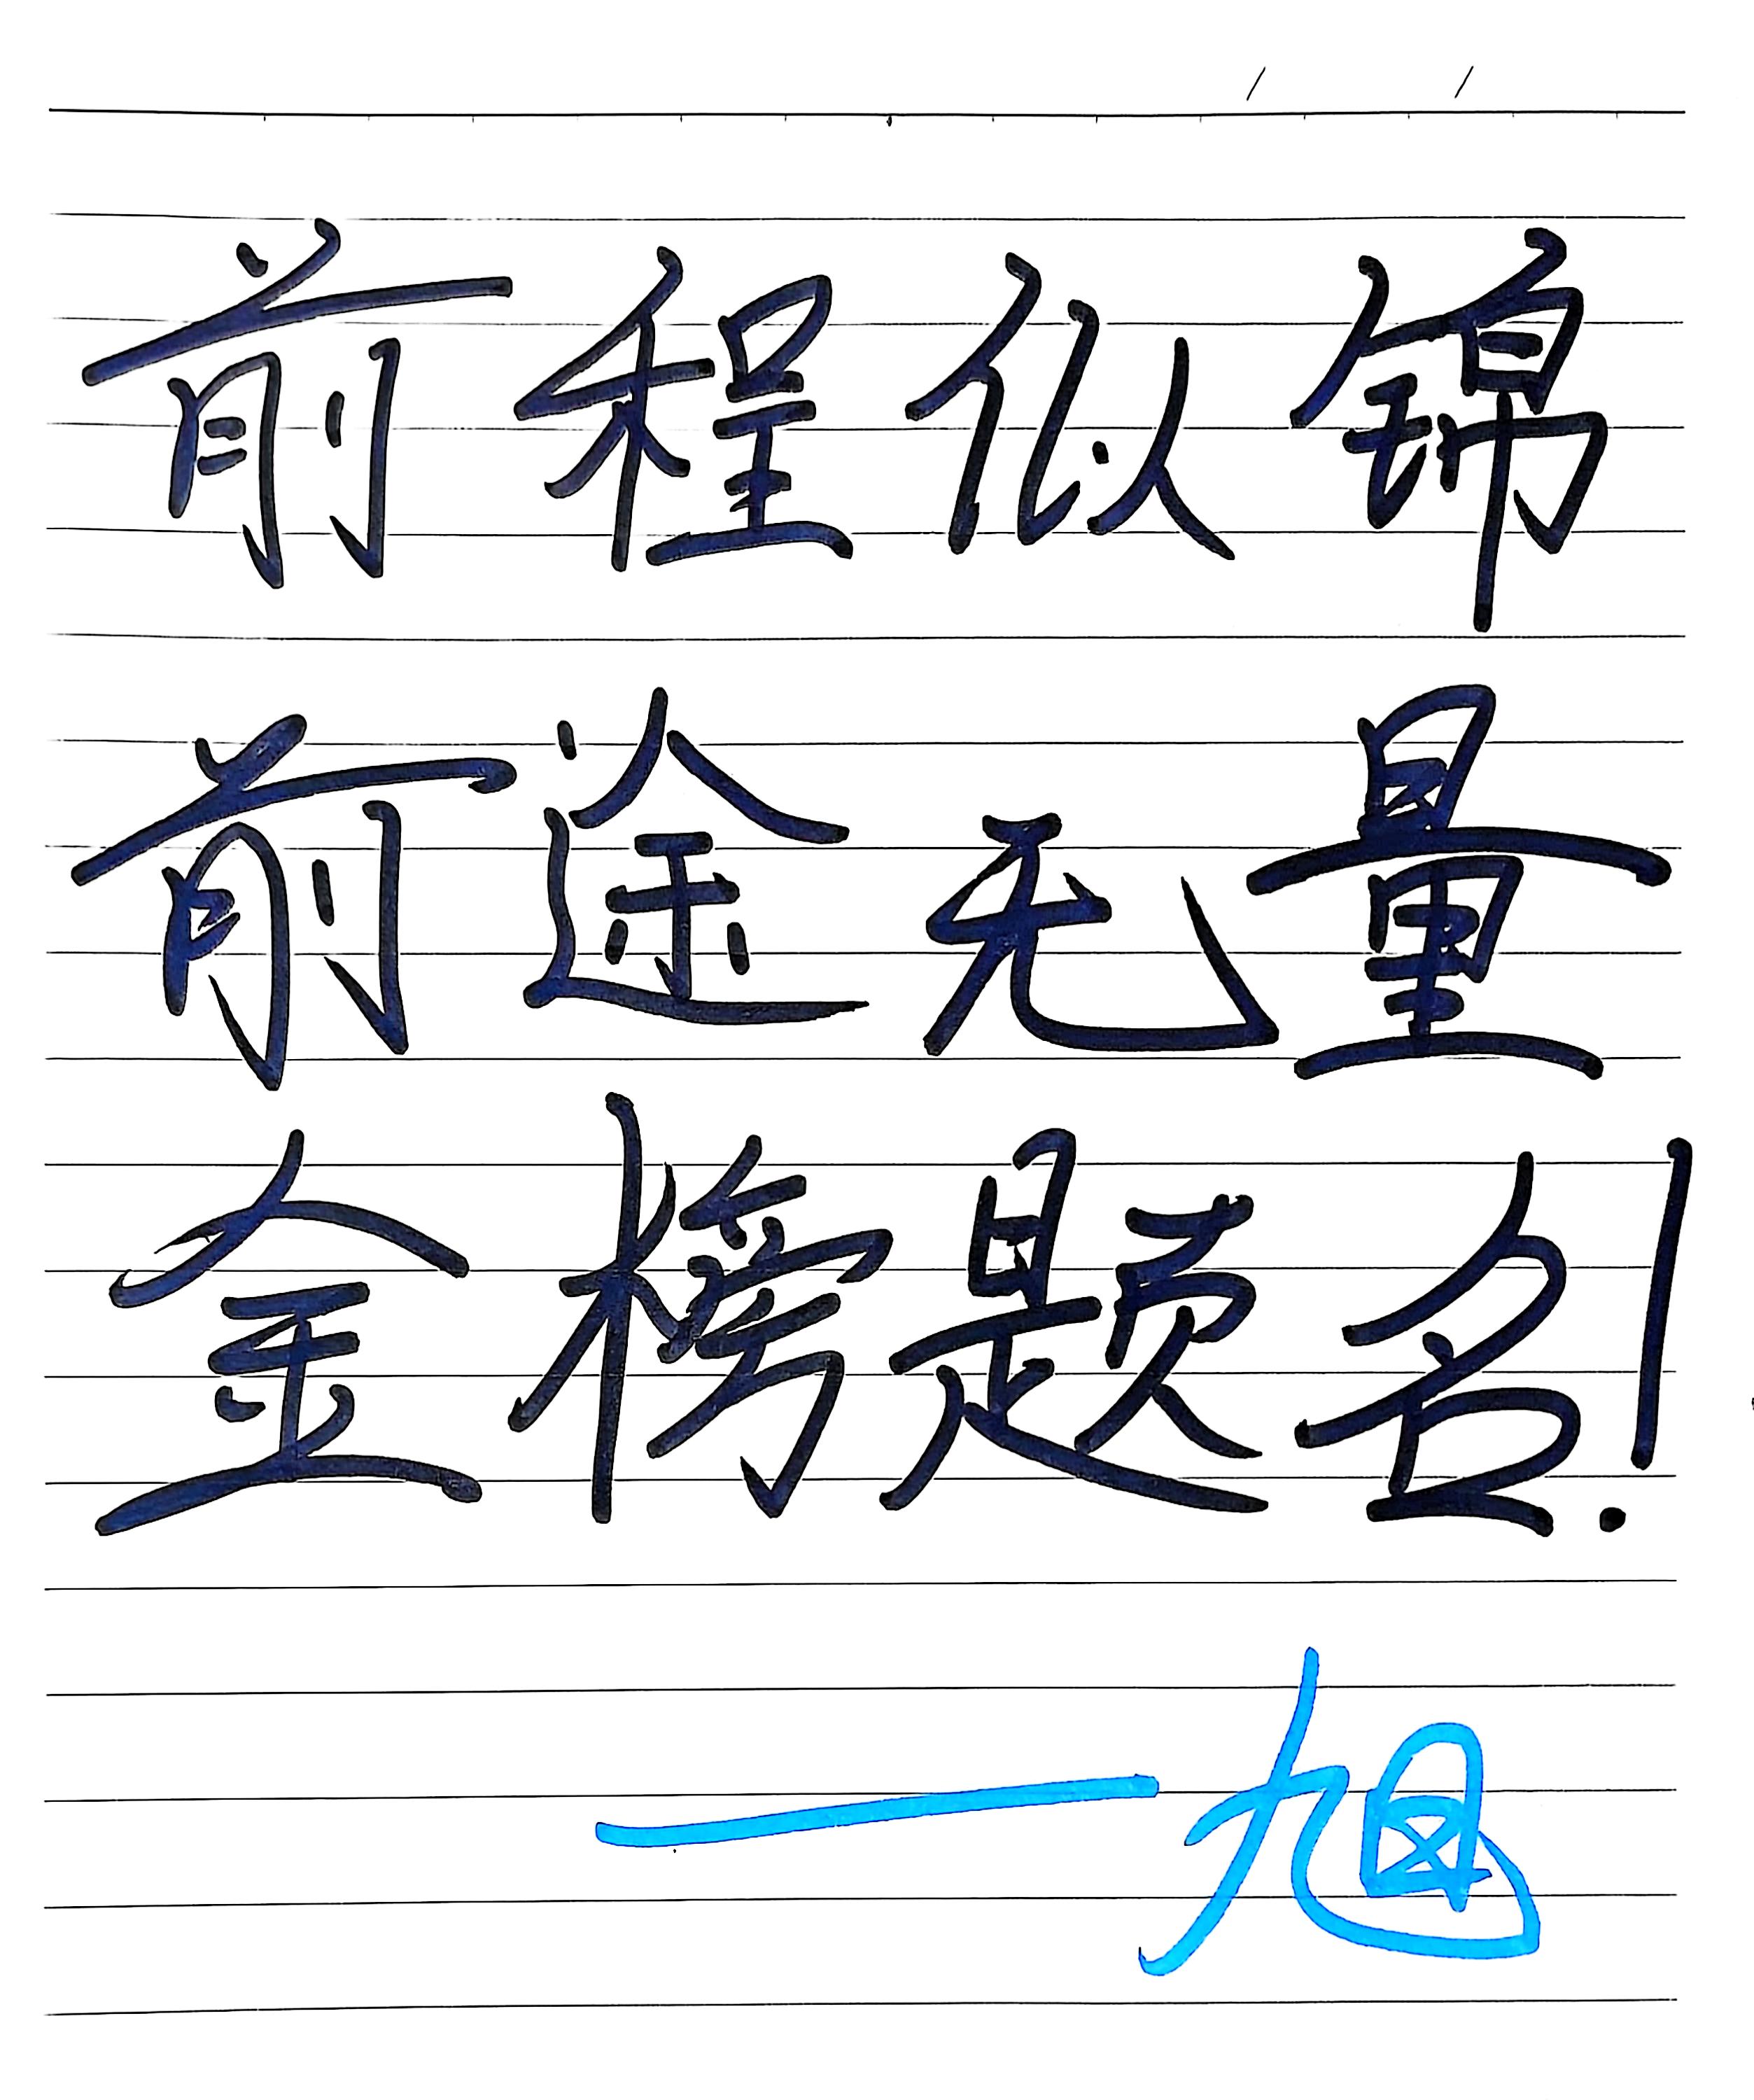 前程似锦
前途无量
金榜题名！
——旭